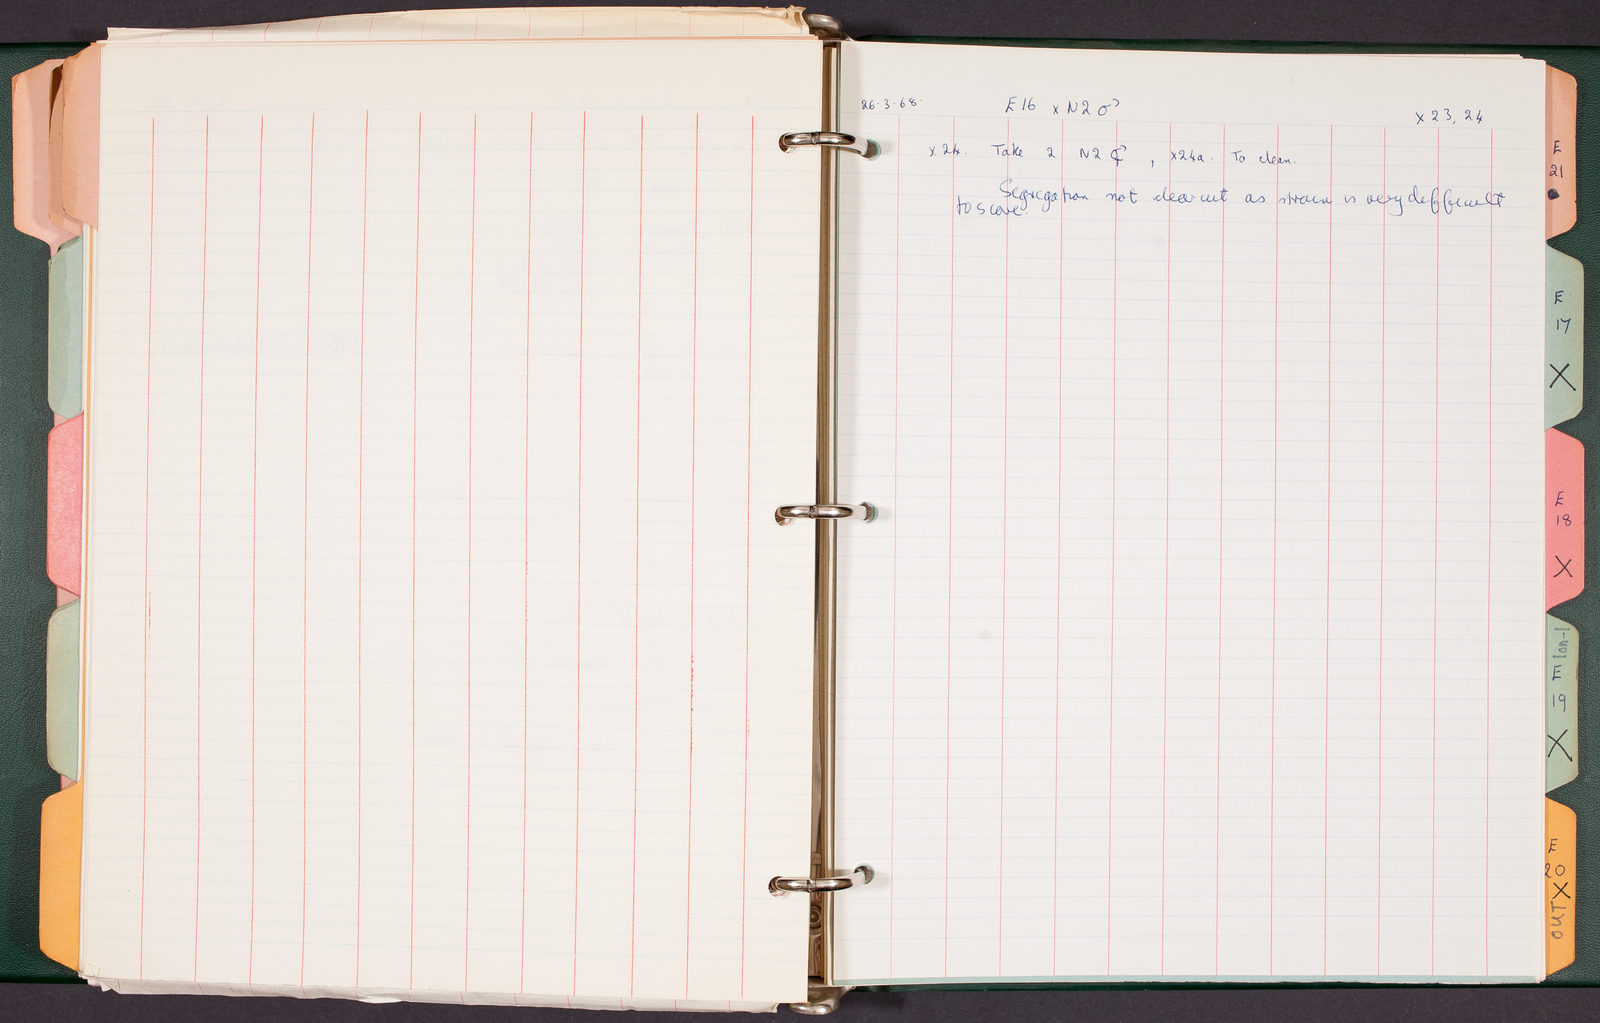 26.3.68.
E16 x N2 ♂
x 23, 24
x 24. Take 2 N2 ⚥, x24a. To clean.
Segregation not clearcut as strain is very difficult
to score.
E
21
E
17
X
E
18
X
lon-1
E
19
X
E
20
X
OUT